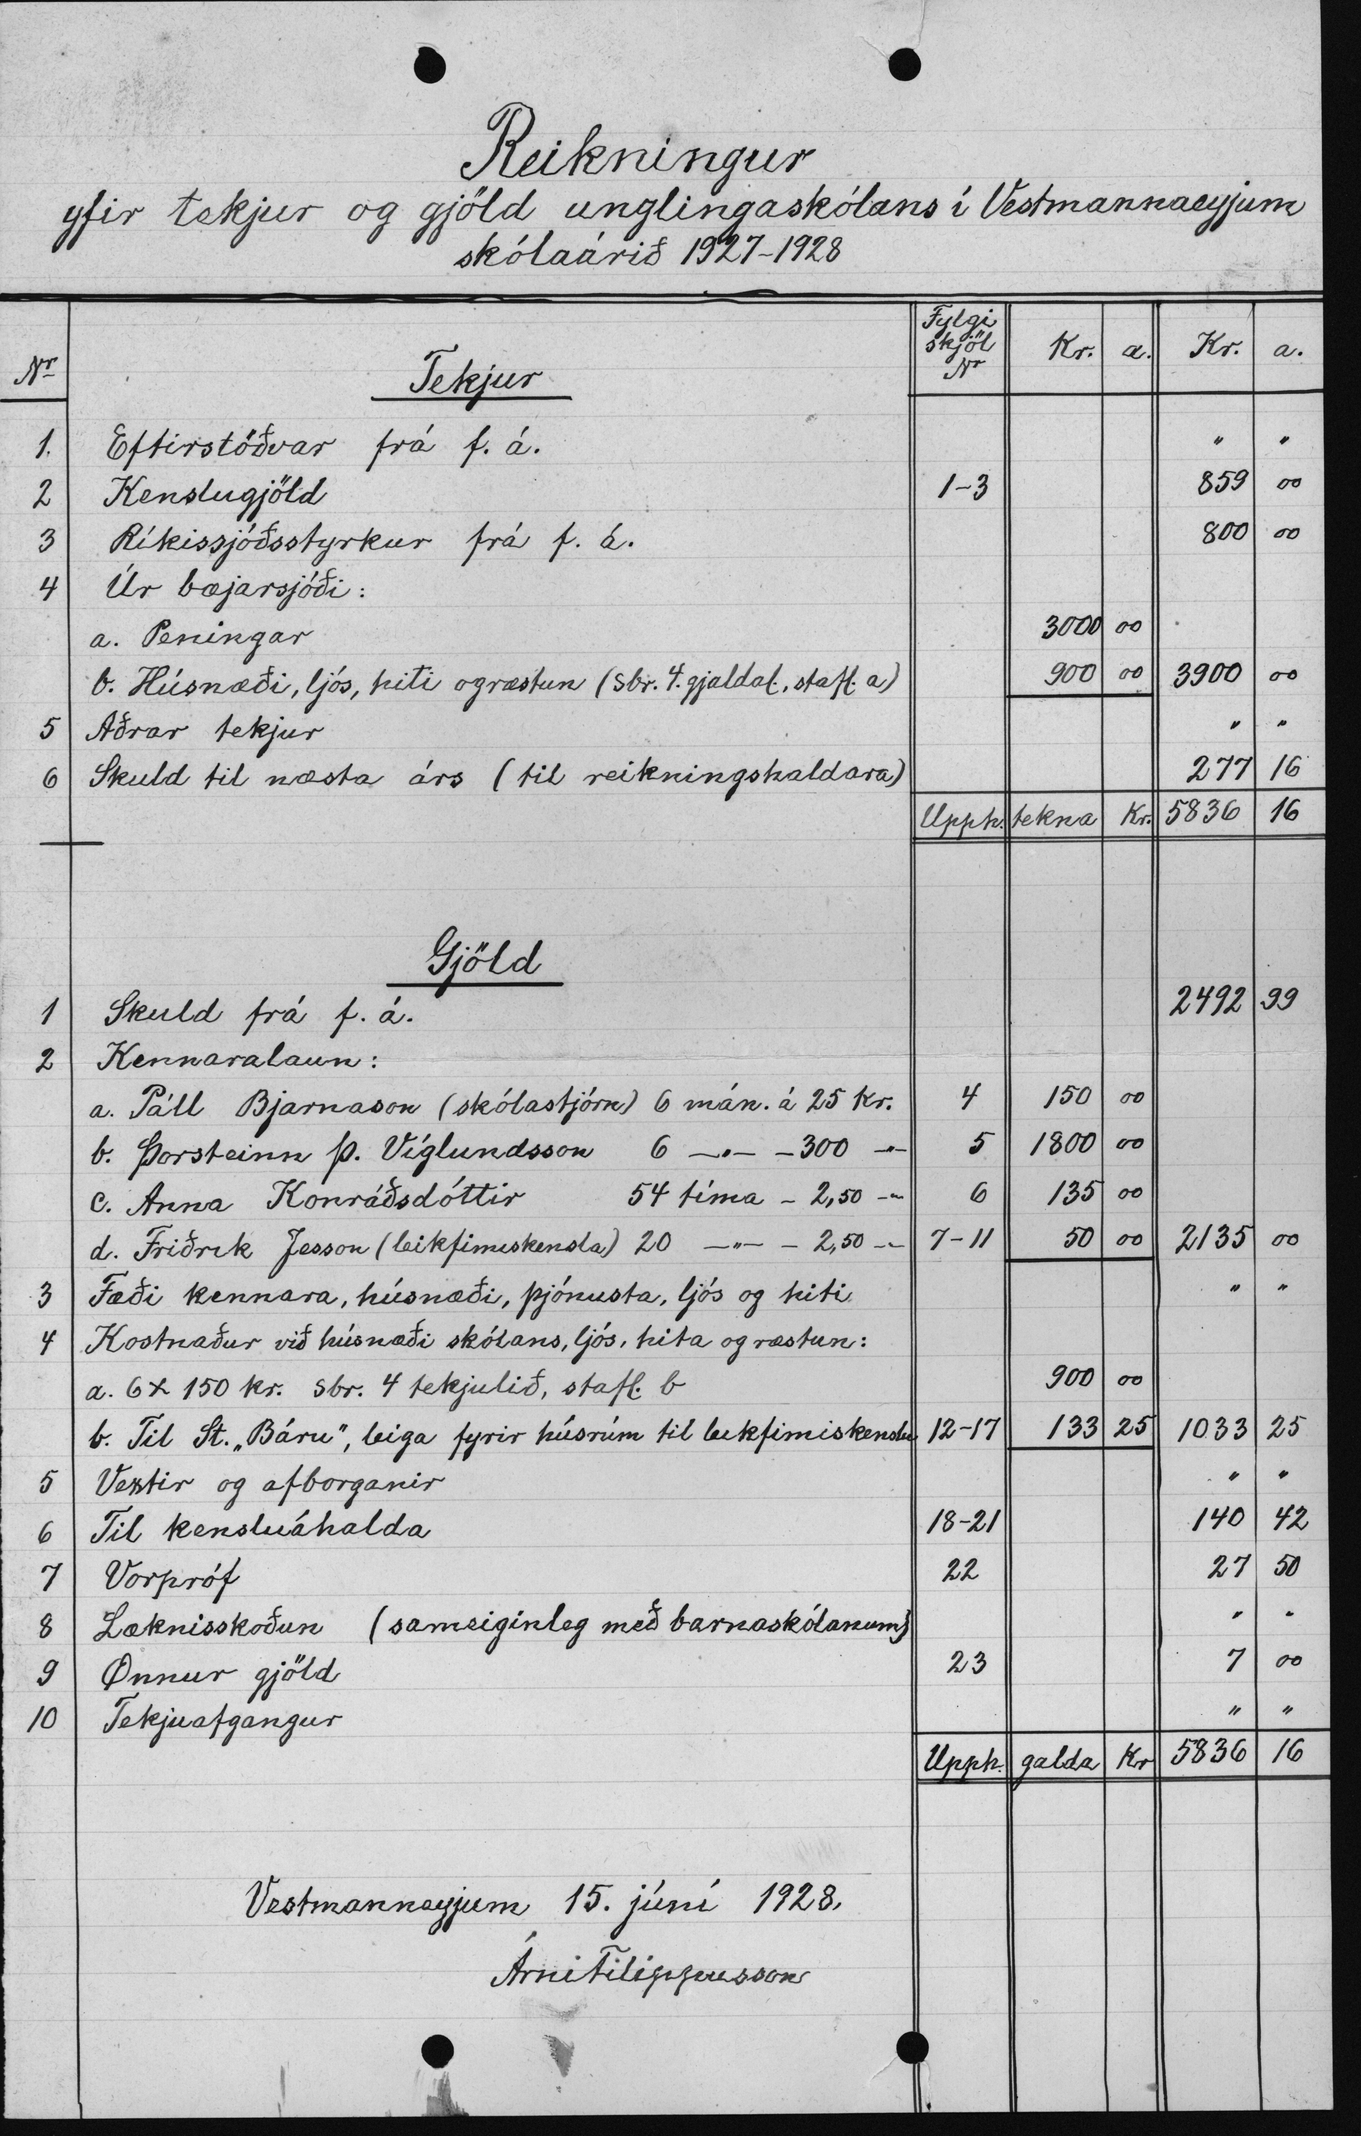 Reikningur
yfir tekjur og gjöld unglingaskólans í Vestmannaeyjum
skólaárið 1927-1928
Nr Tekjur Fylgi skjöl Nr Kr. a. Kr. a.
1. Eftirstöðvar frá f. á. " "
2 Kenslugjöld 1-3 859 00
3 Ríkissjóðsstyrkur frá f. á. 800 00
4 Úr bæjarsjóði:
a. Peningar 3000 00
b. Húsnæði, ljós, hiti og ræstun (sbr. 4. gjaldal., stafl. a) 900 00 3900 00
5 Aðrar tekjur " "
6 Skuld til næsta árs (til reikningshaldara) 277 16
Upph. tekna Kr. 5836 16
Gjöld
1 Skuld frá f. á. 2492 99
2 Kennaralaun:
a. Páll Bjarnason (skólastjórn) 6 mán. á 25 kr. 4 150 00
b. Þorsteinn Þ. Víglundsson 6 —"— - 300 -"- 5 1800 00
c. Anna Konráðsdóttir 54 tíma - 2,50 -"- 6 135 00
d. Friðrik Jesson (leikfimiskensla) 20 —"— - 2,50 -"- 7-11 50 00 2135 00
3 Fæði kennara, húsnæði, þjónusta, ljós og hiti " "
4 Kostnaður við húsnæði skólans, ljós, hita og ræstun:
a. 6 x 150 kr. sbr. 4 tekjulið, stafl. b 900 00
b. Til St. „Báru", leiga fyrir húsrúm til leikfimiskenslu 12-17 133 25 1033 25
5 Vextir og afborganir " "
6 Til kensluáhalda 18-21 140 42
7 Vorpróf 22 27 50
8 Læknisskoðun (sameiginleg með barnaskólanum) " "
9 Önnur gjöld 23 7 00
10 Tekjuafgangur " "
Upph. galda Kr 5836 16
Vestmannaeyjum 15. júní 1928.
Árni Filippusson